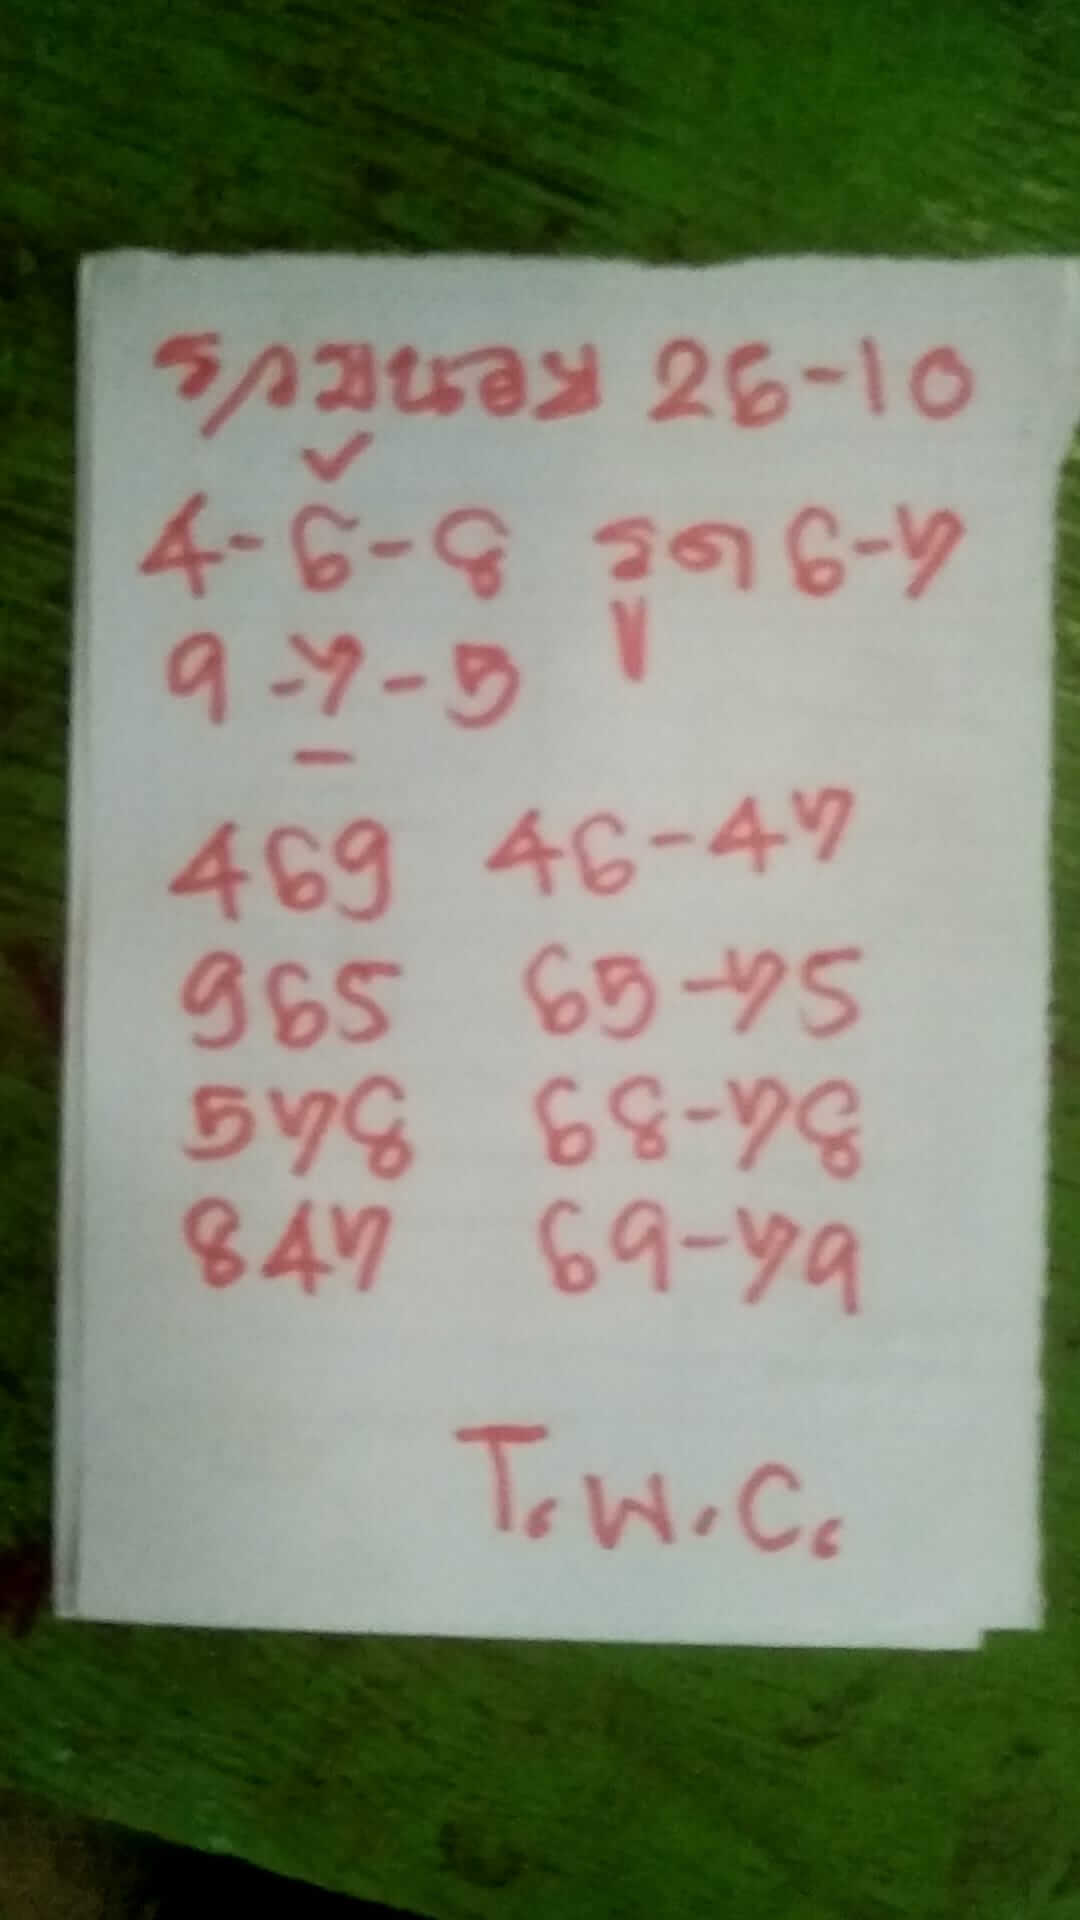 26-10
4-6-8 รูด 6-7
9-7-5
469 46-47
965 65-75
578 68-78
847 69-79
T.W.C.